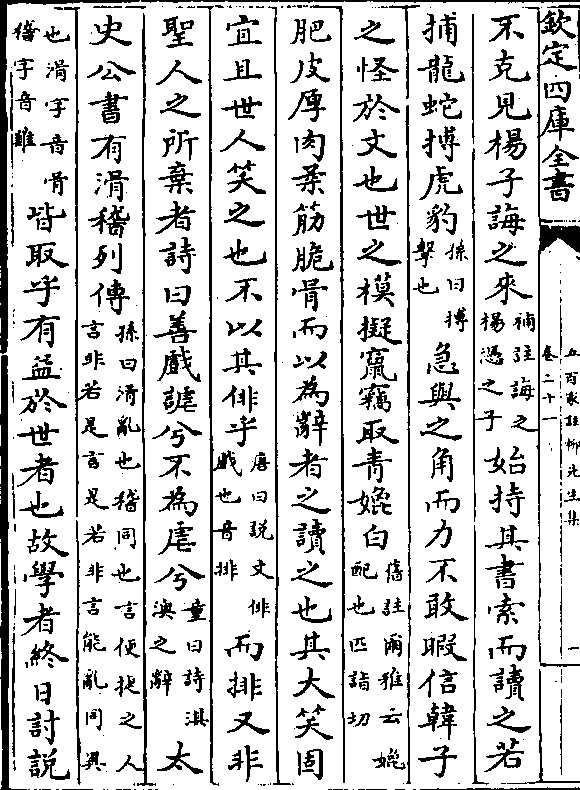 欽定四庫全書
五百家註柳先生集
卷二十一
一
不克見楊子誨之來補註誨之楊憑之子始持其書索而讀之若
捕龍蛇搏虎豹孫曰搏擊也急與之角而力不敢暇信韓子
之怪於文也世之模擬竄竊取青媲白舊註爾雅云媲配也匹詣切
肥皮厚肉柔筋脆骨而以為辭者之讀之也其大笑固
宜且世人笑之也不以其俳乎唐曰說文俳戲也音排而俳又非
聖人之所棄者詩曰善戲謔兮不為虐兮童曰詩淇澳之辭太
史公書有滑稽列傳孫曰滑亂也稽同也言便捷之人言非若是言是若非言能亂同異
也滑字音骨稽字音雞皆取乎有益於世者也故學者終日討說